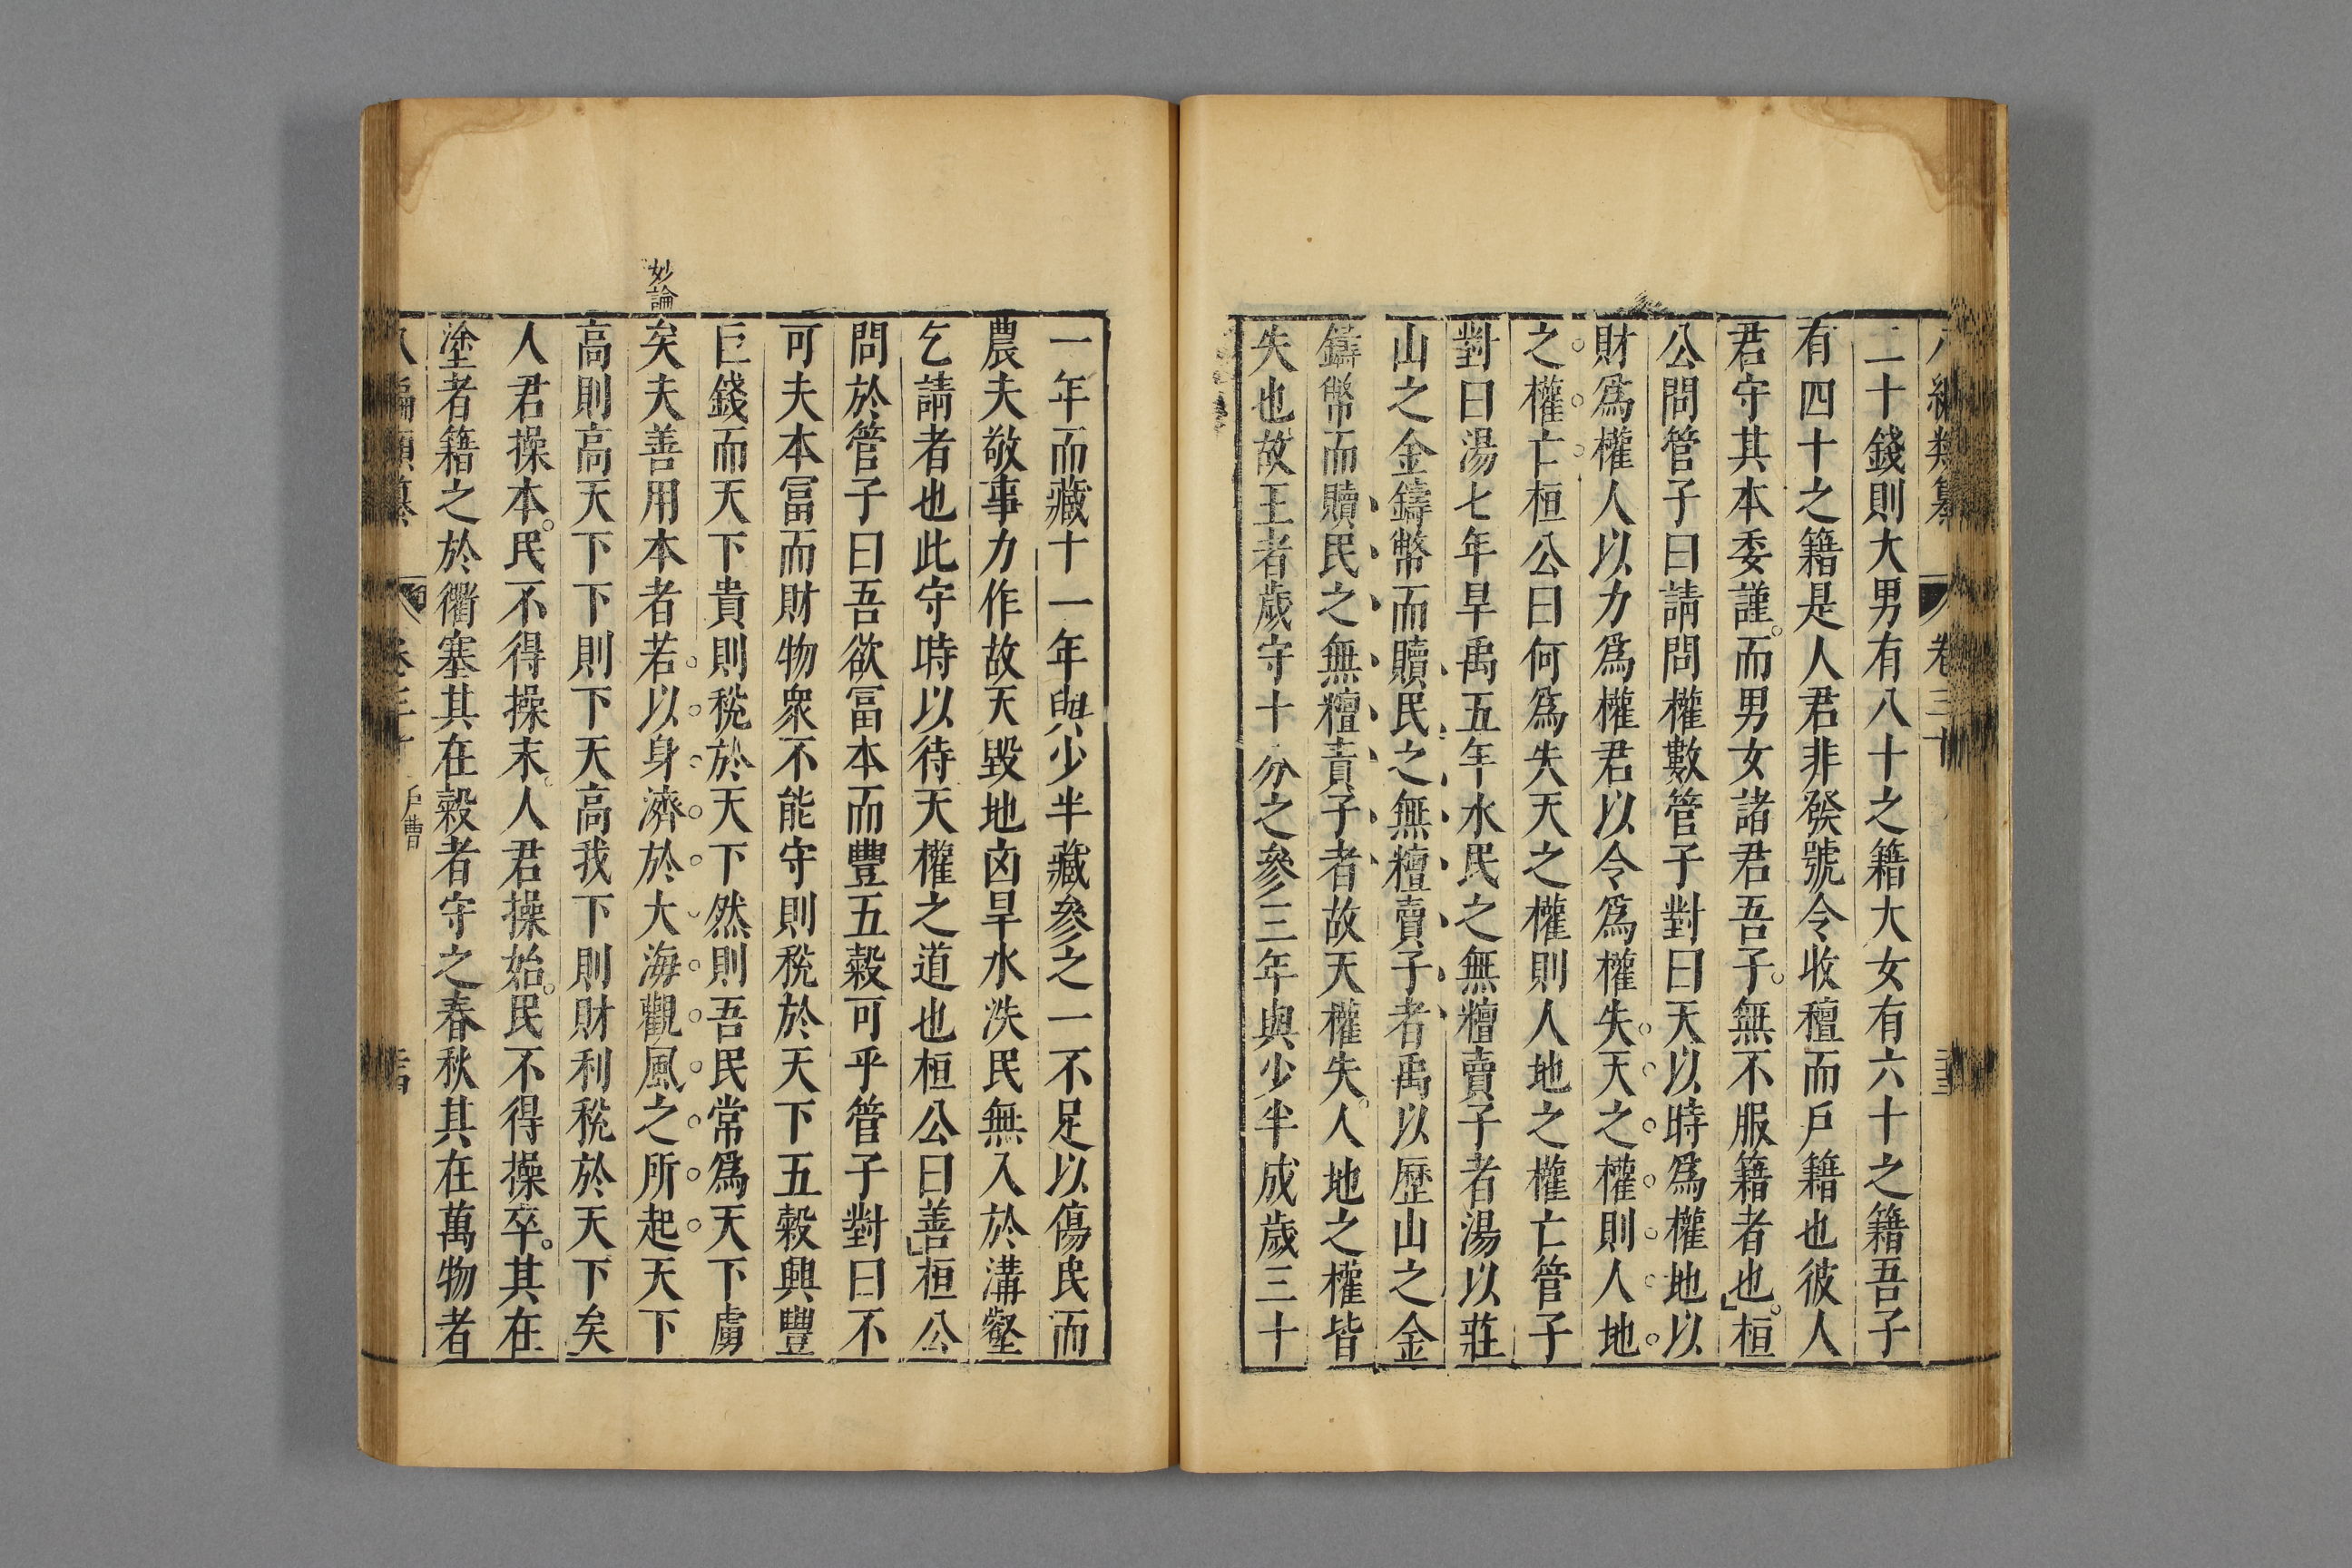 八編類纂 卷三十
二十錢則大男有八十之籍大女有六十之籍吾子
有四十之籍是人君非發號令收穡而戶籍也彼人
君守其本委謹而男女諸君吾子無不服籍者也桓
公問管子曰請問權數管子對曰天以時爲權地以
財爲權人以力爲權君以令爲權失天之權則人地
之權亡桓公曰何爲失天之權則人地之權亡管子
對曰湯七年旱禹五年水民之無𥼷賣子者湯以莊
山之金鑄幣而贖民之無𥼷賣子者禹以歷山之金
鑄幣而贖民之無𥼷賣子者故天權失人地之權皆
失也故王者歲守十分之參三年與少半成歲三十
一年而藏十一年與少半藏參之一不足以傷民而
農夫敬事力作故天毀地凶旱水泆民無入於溝壑
乞請者也此守時以待天權之道也桓公曰善桓公
問於管子曰吾欲冨本而豐五穀可乎管子對曰不
可夫本冨而財物衆不能守則稅於天下五穀興豐
巨錢而天下貴則稅於天下然則吾民常爲天下虜
妙論
矣夫善用本者若以身濟於大海觀風之所起天下
高則高天下下則下天高我下則財利稅於天下矣
人君操本民不得操末人君操始民不得操卒其在
塗者籍之於衢塞其在穀者守之春秋其在萬物者
八編類纂 卷三十 戶曹